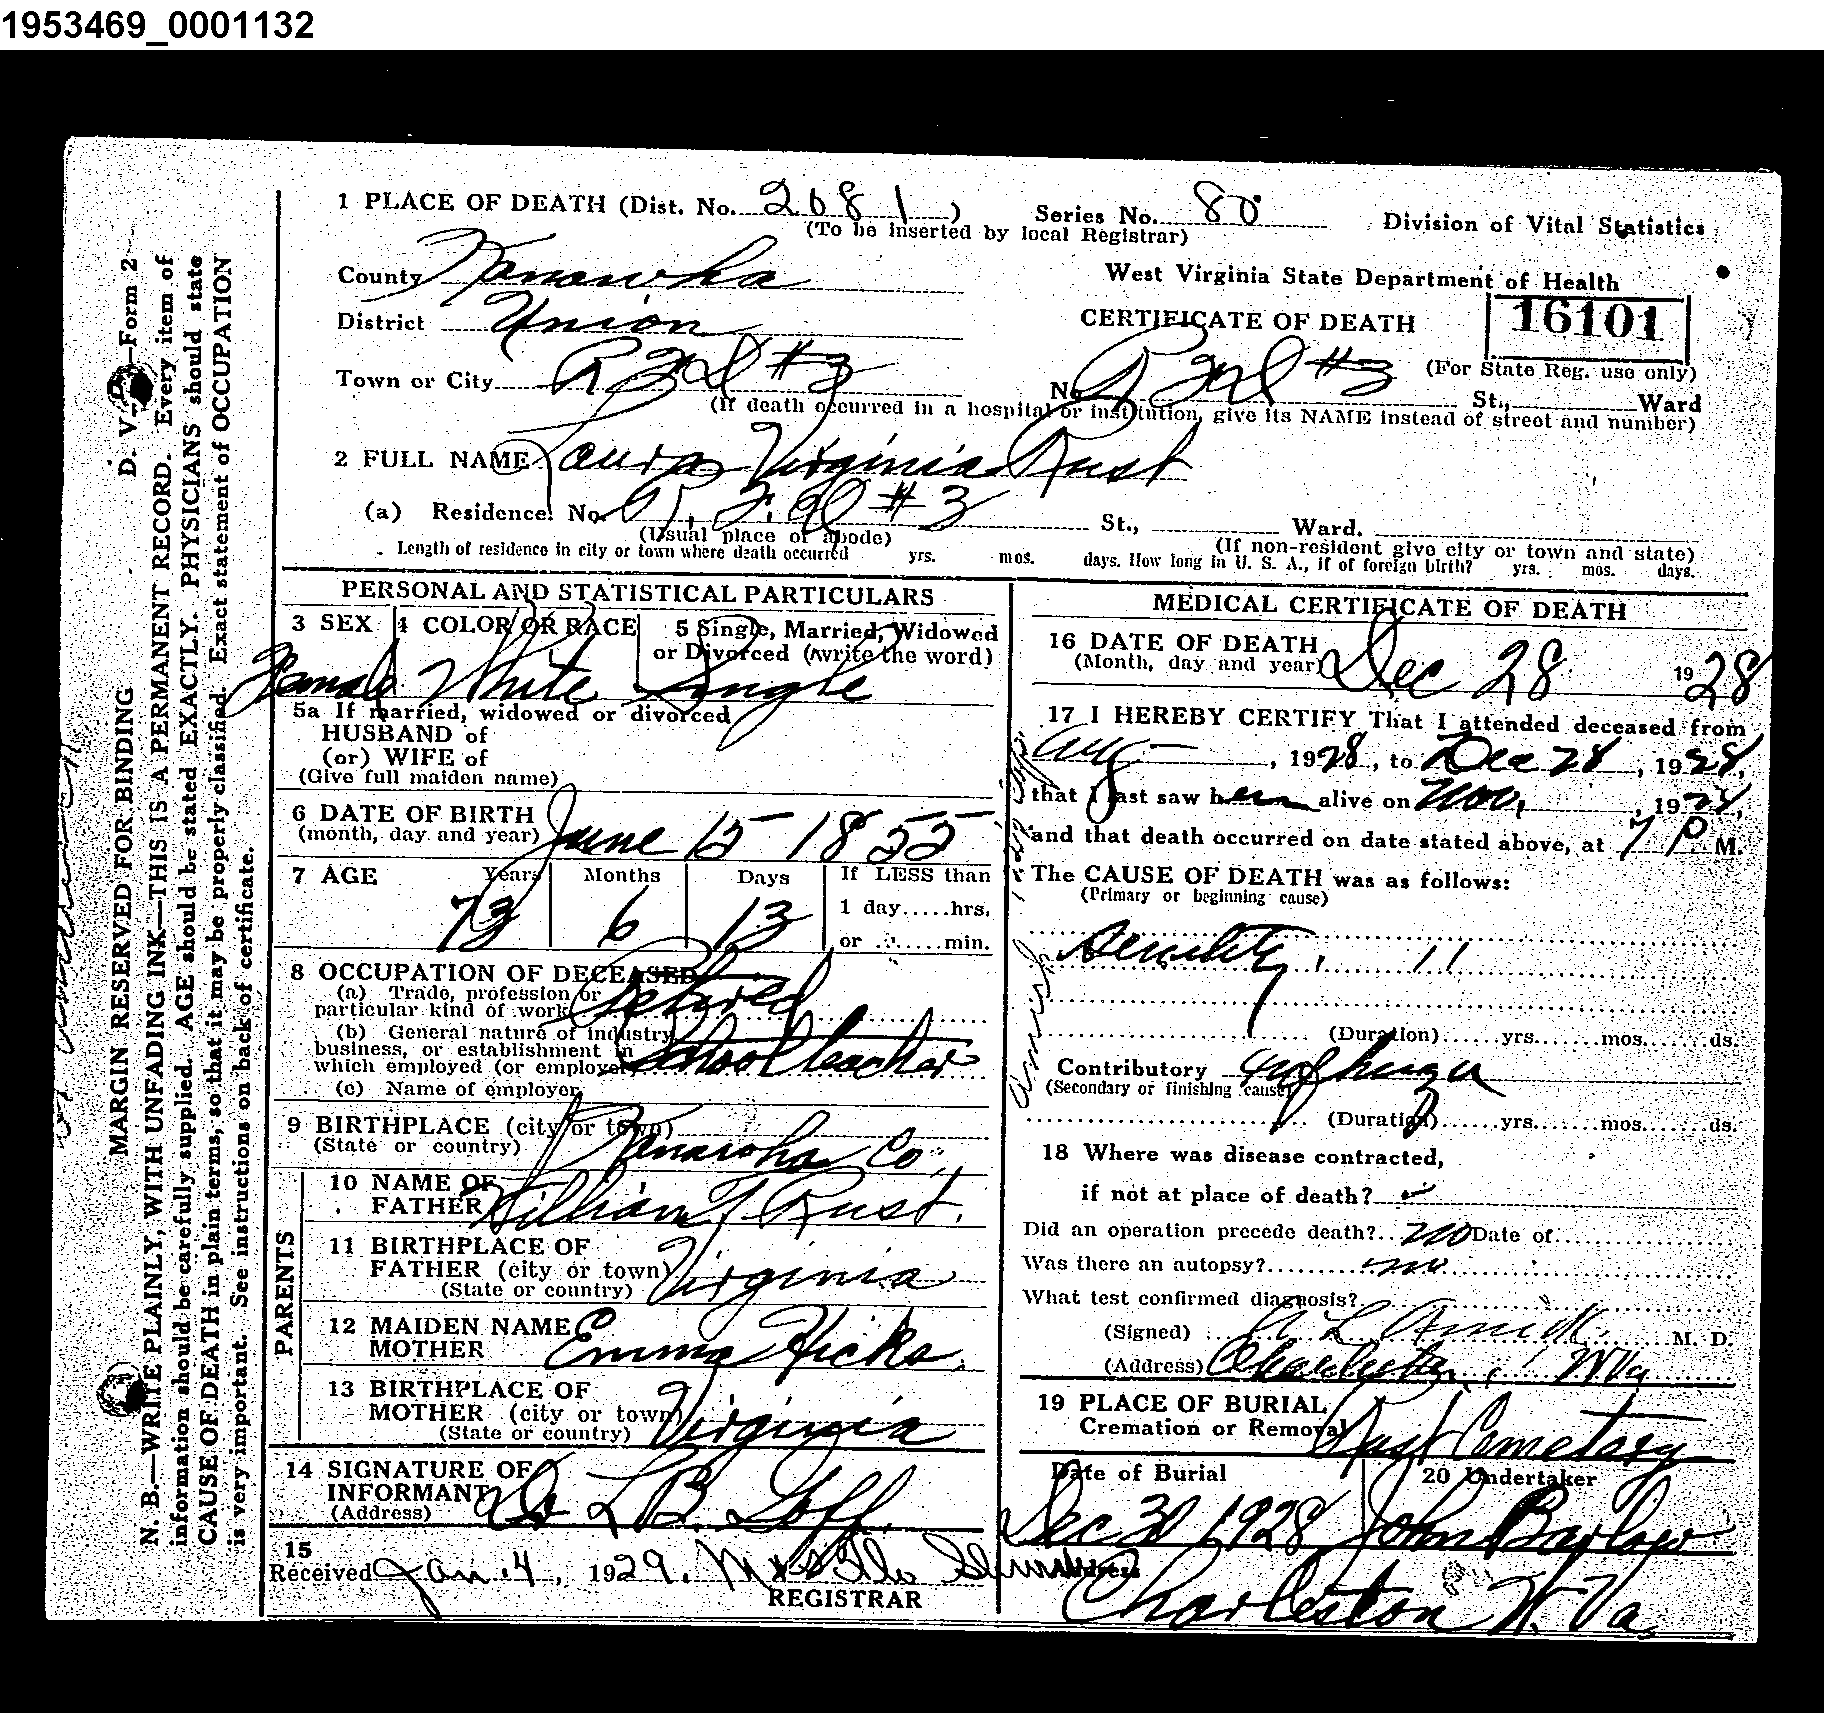 1953469_0001132
1 PLACE OF DEATH (Dist. No. 2081 ) Series No. 80 Division of Vital Statistics
(To be inserted by local Registrar)
County Kanawha West Virginia State Department of Health
District Union CERTIFICATE OF DEATH 16101
Town or City R F D #3 No. R F D #3 St., Ward
(For State Reg. use only)
(If death occurred in a hospital or institution, give its NAME instead of street and number)
2 FULL NAME Laura Virginia Rust
(a) Residence. No. R. F. D #3 St., Ward.
(Usual place of abode) (If non-resident give city or town and state)
Length of residence in city or town where death occurred yrs. mos. days. How long in U. S. A., if of foreign birth? yrs. mos. days.
PERSONAL AND STATISTICAL PARTICULARS
3 SEX 4 COLOR OR RACE 5 Single, Married, Widowed
or Divorced (write the word)
Female White Single
5a If married, widowed or divorced
HUSBAND of
(or) WIFE of
(Give full maiden name)
6 DATE OF BIRTH
(month, day and year) June 15 1855
7 AGE Years Months Days If LESS than
73 6 13 1 day.....hrs.
or ......min.
8 OCCUPATION OF DECEASED
(a) Trade, profession or
particular kind of work Retired
(b) General nature of industry
business, or establishment in
which employed (or employer) School teacher
(c) Name of employer
9 BIRTHPLACE (city or town)
(State or country) Kanawha Co.,
PARENTS
10 NAME OF
FATHER William J Rust.
11 BIRTHPLACE OF
FATHER (city or town) Virginia
(State or country)
12 MAIDEN NAME
MOTHER Emma Hicks.
13 BIRTHPLACE OF
MOTHER (city or town) Virginia
(State or country)
14 SIGNATURE OF
INFORMANT L. B. Goff.
(Address)
15
Received Jan. 4, 1929. Mrs
REGISTRAR
MEDICAL CERTIFICATE OF DEATH
16 DATE OF DEATH
(Month, day and year) Dec 28 1928
17 I HEREBY CERTIFY That I attended deceased from
Aug, 1928, to Dec 28, 1928,
that I last saw her alive on Nov, 1928,
and that death occurred on date stated above, at 7 P. M.
The CAUSE OF DEATH was as follows:
(Primary or beginning cause)
Senility
(Duration) yrs. mos. ds.
Contributory
(Secondary or finishing cause)
(Duration) yrs. mos. ds.
18 Where was disease contracted,
if not at place of death?
Did an operation precede death? no Date of
Was there an autopsy? no
What test confirmed diagnosis?
(Signed) A L Amick M. D.
(Address) Charleston, W Va
19 PLACE OF BURIAL
Cremation or Removal Rust Cemetery
Date of Burial 20 Undertaker
Dec 30 1928 John Barlow
Address
Charleston W. Va.
D. V.—Form 2
MARGIN RESERVED FOR BINDING
N. B.—WRITE PLAINLY, WITH UNFADING INK—THIS IS A PERMANENT RECORD. Every item of
information should be carefully supplied. AGE should be stated EXACTLY. PHYSICIANS should state
CAUSE OF DEATH in plain terms, so that it may be properly classified. Exact statement of OCCUPATION
is very important. See instructions on back of certificate.